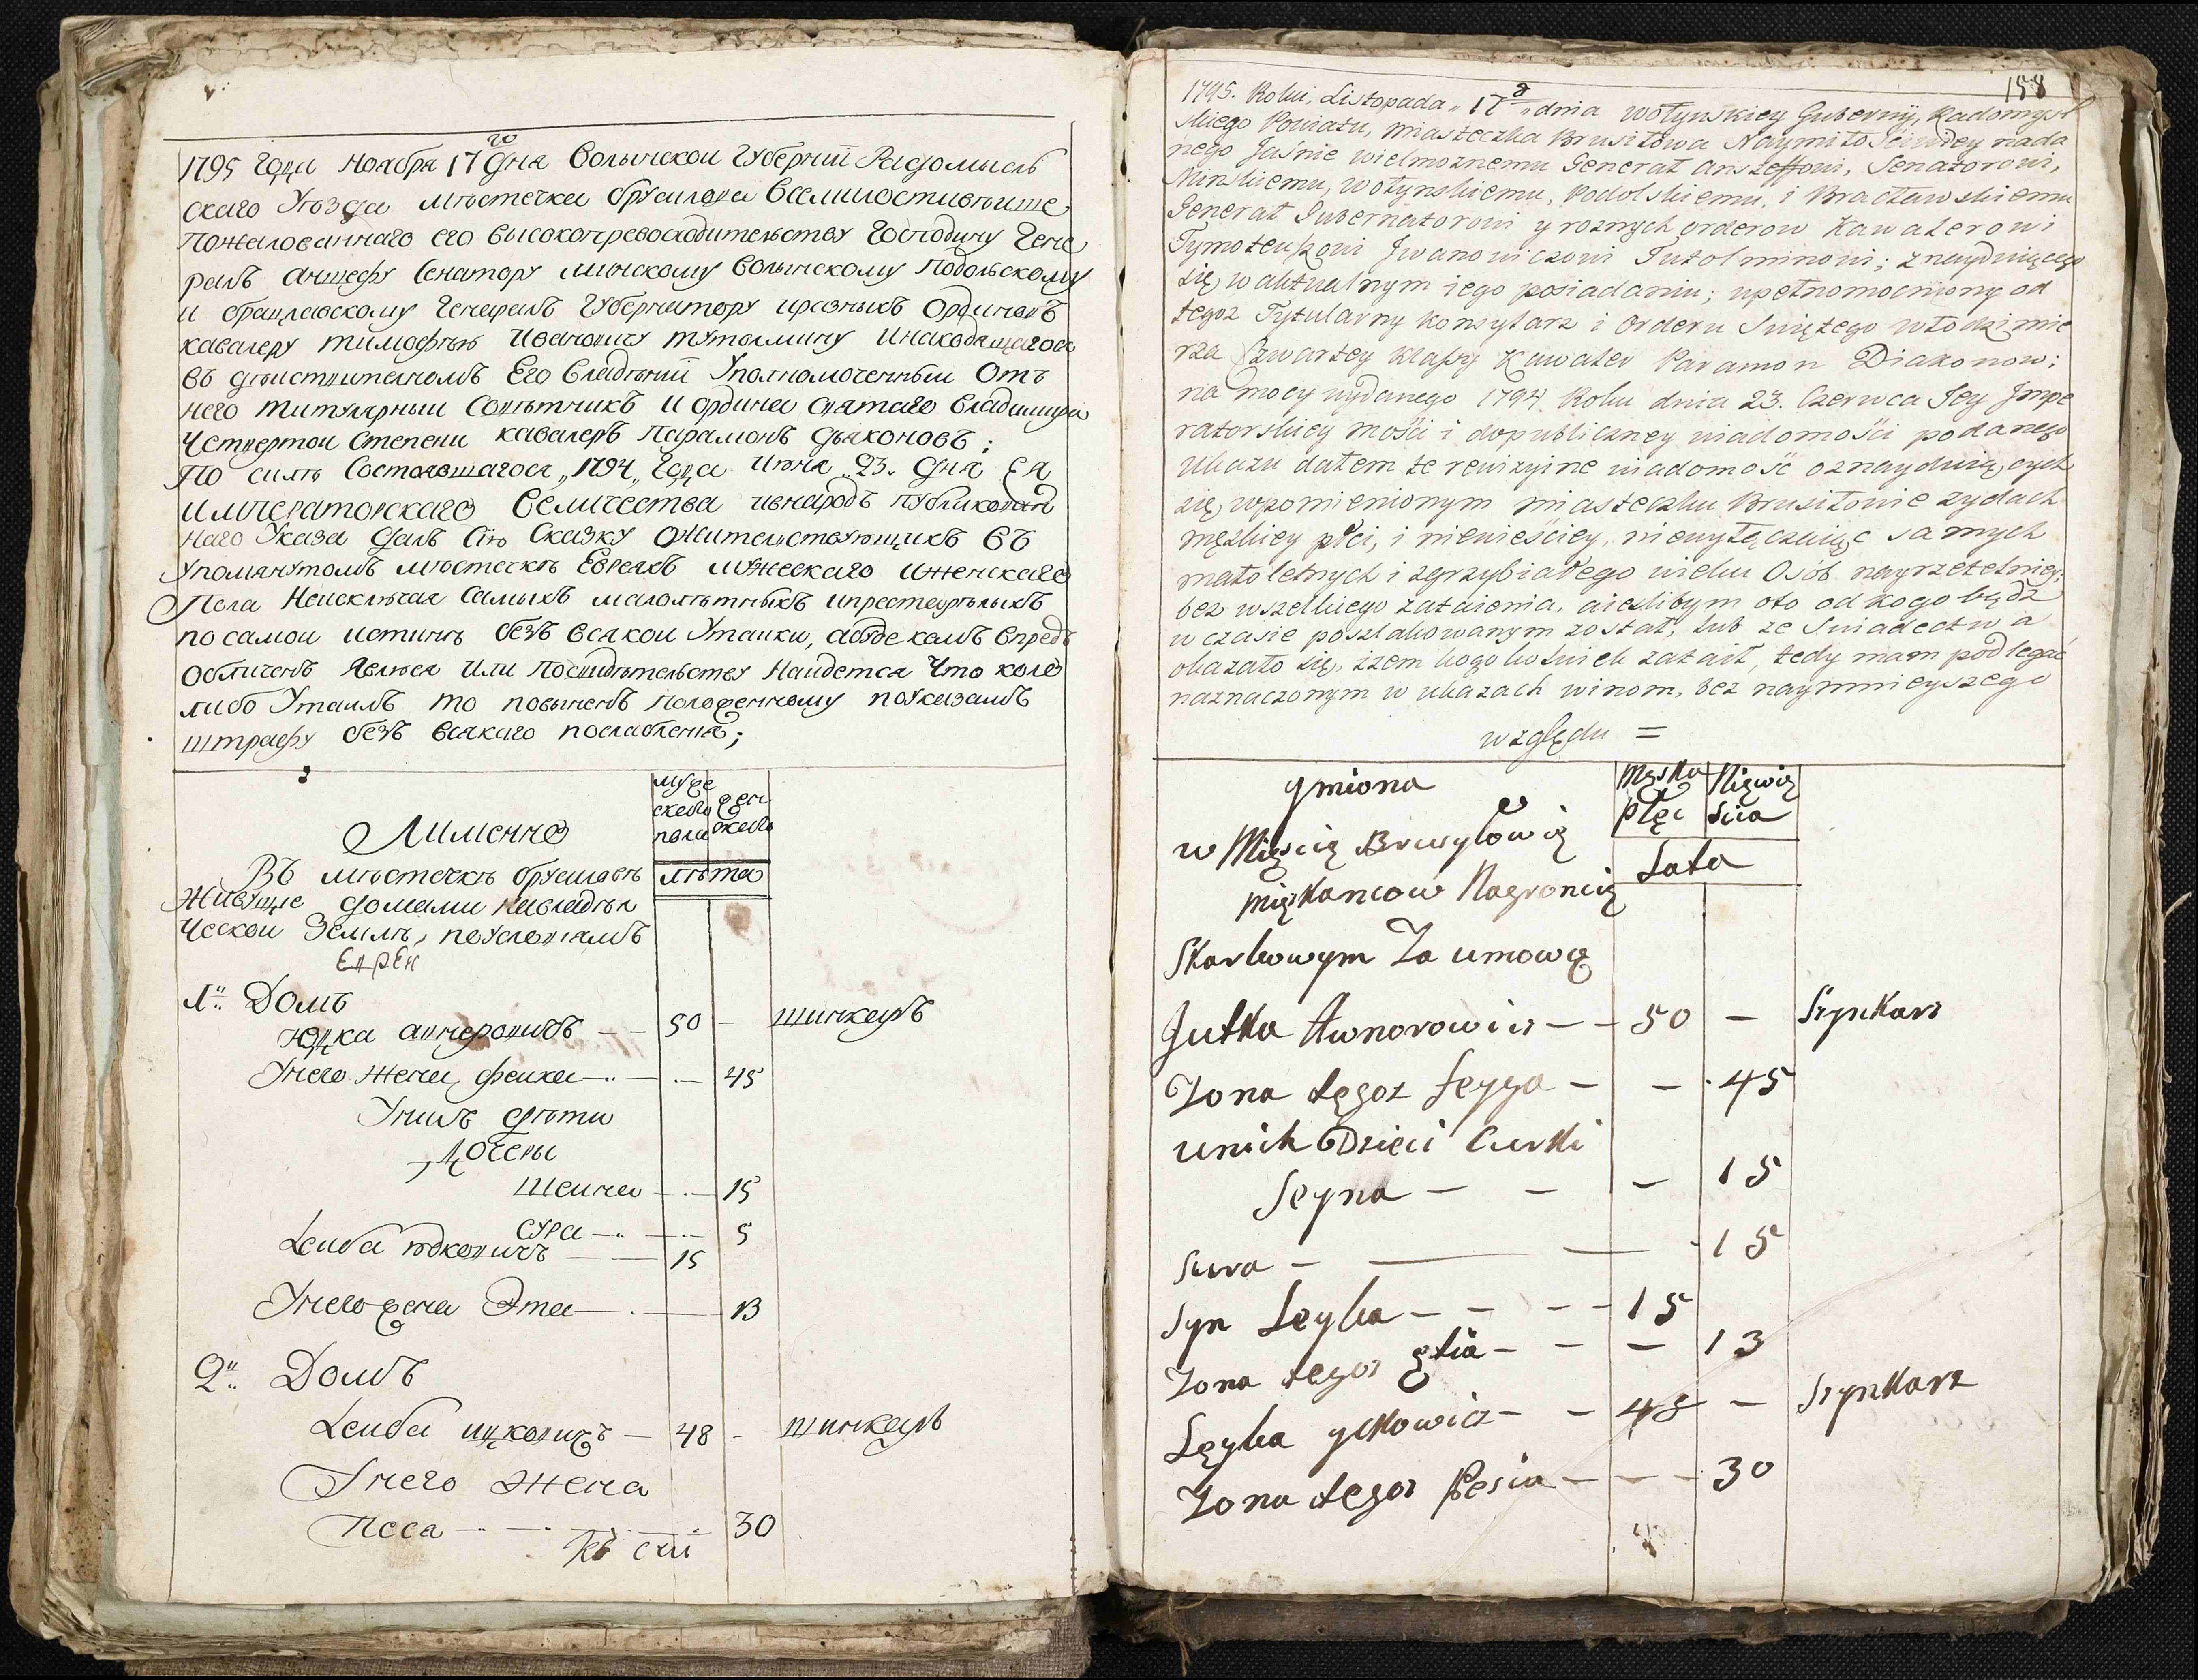 1795 года Ноября 17го дня Волынской губернїи Радомысль
скаго Уѣзда мѣстечка брусилова Всемилостивѣише
Пожалованнаго его Высокопревосходительству Господину Гене
ралъ аншефу Сенатору минскому Волынскому Подольскому
и брацлавскому Генералъ Губернатору иразныхъ Ординовъ
кавалеру тимофѣю Ивановичу тутолмину Инаходящагося
въ дѣиствителномъ Его Владѣнїи Уполномоченныи Отъ
него титулярныи Совѣтникъ и ордина святаго Владимира
Четвертои степени кавалеръ Парамонъ дьяконовъ;
По силѣ Состоявшагося „1794„ Года Июня 23. дня Ея
императорскаго Величества ивнародъ публикован
наго Указа далъ Сїю Сказку Ожителствующихъ Въ
упомянутомъ мѣстечкѣ Евреяхъ мужескаго иженскаго
Пола Неисключая самыхъ малолѣтныхъ ипрестарѣлыхъ
по самои истиннѣ безъ всякои Утаики, абуде кемъ впредъ
обличенъ Явлюся или Посвидѣтельству Наидется Что кого
либо Утаилъ то повиненъ положенному поуказамъ
штрафу безъ всякаго послабленїя;
Аименно
муже
скаго
пола
жен
скаго
лѣта
Въ мѣстечкѣ брусиловѣ
Живущїе домами навладѣл
ческои Землѣ, поусловїямъ
Евреи
1й. Домъ
Юдка авнеровичъ — — 50 — шинкаръ
Унего жена феига — — 45
Унихъ дѣти
дочеры
Шеина — — 15
сура — — 5
Леиба юдковичъ — — 15
Унего жена Эта — — 13
2й. Домъ
Леиба ицковичъ — 48 - шинкаръ
Унего жена
песа — — 30
158
1795. Roku, Listopada „17„ dnia wołynskiey Gubernij, Radomysl
skiego Powiatu, miasteczka Brusiłowa Naymiłosciwiey nada
nego Jaśnie wielmoznemu Generał Anszeffowi, Senatorowi,
Minskiemu, wołynskiemu, Podolskiemu, i Bracławskiemu
Generał Gubernatorowi y roznych orderow Kawalerowi
Tymoteuszowi Jwanowiczowi Tutolminowi; znayduiącego
się w aktualnym iego posiadaniu; upełnomocniony od
tegoz Tytularny Konsyliarz i Orderu Swiętego włodzimie
rza Czwartey Klassy Kawaler Paramon Diakonow;
na mocy wydanego 1794 Roku dnia 23. Czerwca Jey Jmpe
ratorskiey mości i dopubliczney wiadomości podanego
Ukazu dałem te rewizyine wiadomość oznayduiących
się wpomienionym miasteczku Brusiłowie zydach
męzkiey płci, i niewieściey, niewyłączaiąc samych
małoletnych i zgrzybiałego wieku Osób nayrzetelniey,
bez wszelkiego zataienia, aieslibym oto od kogo bądz
w czasie poszlakowanym został, lub ze swiadectwa
okazało się, izem kogokolwiek zataił, tedy mam podlegać
naznaczonym w ukazach winom, bez naymnieyszego
względu =
ymiona
Męska
płęc
Nięwię
scia
Lata
w Mięscię Brusylowię
mięszkancow Nagroncię
Skarbowym Za umową
Jutka Awnorowicz — — 50 — Szynkarz
Zona tęgoz feyga — — 45
unich Dzieci Curki
Seyna — — — 15
Sura — — — 15
Syn Leyba — — — 15
Zona tegoz Etia — — — 13
Lęyba yckowicz — — 48 — Szynkarz
Zona tegoz Pesia — — — 30